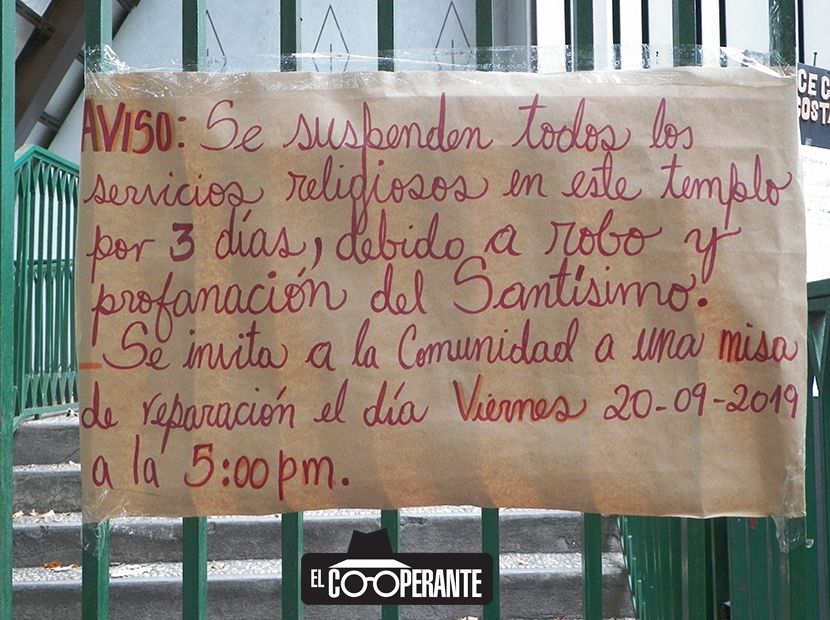 AVISO: Se suspenden todos los
servicios religiosos en este templo
por 3 días, debido a robo y
profanación del Santísimo.
_Se invita a la Comunidad a una misa
de reparación el día Viernes 20-09-2019
a la 5:00 pm.
CE C
COSTA
EL COOPERANTE